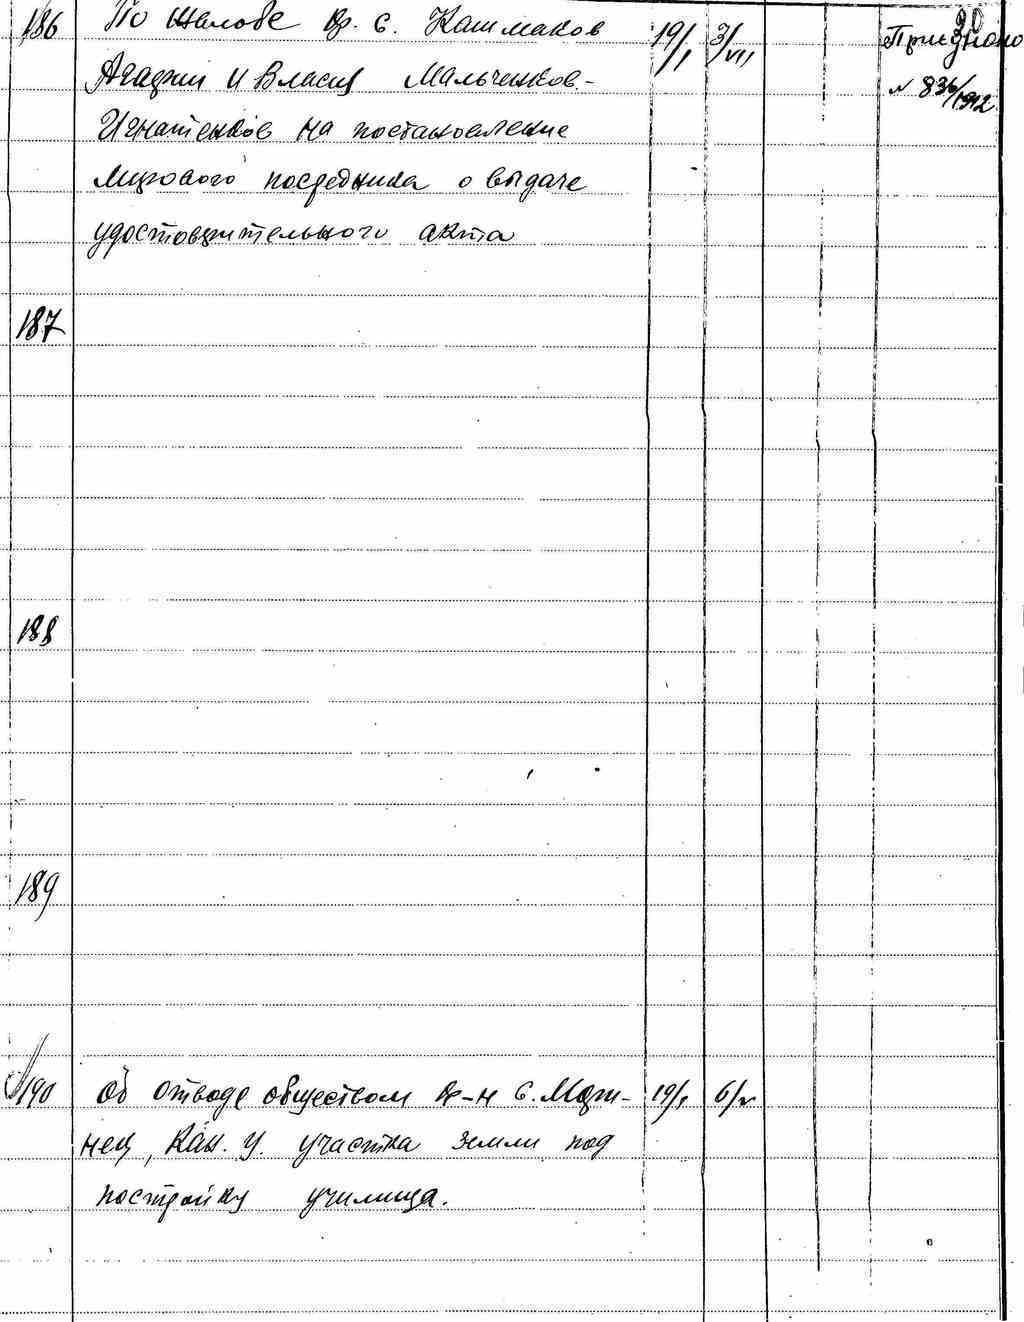 20
186 По жалобе кр. с. Кашмаков 19/I 3/VII Приединено
Агафии и Власия Мальченков- № 836/1912
Игнатенков на постановление
Мирового посредника о выдаче
удостоверительного акта
187
188
189
190 Об отводе обществом кр-н с. Март-  19/I 6/V
нец, Кан. у. участка земли под
постройку училища.